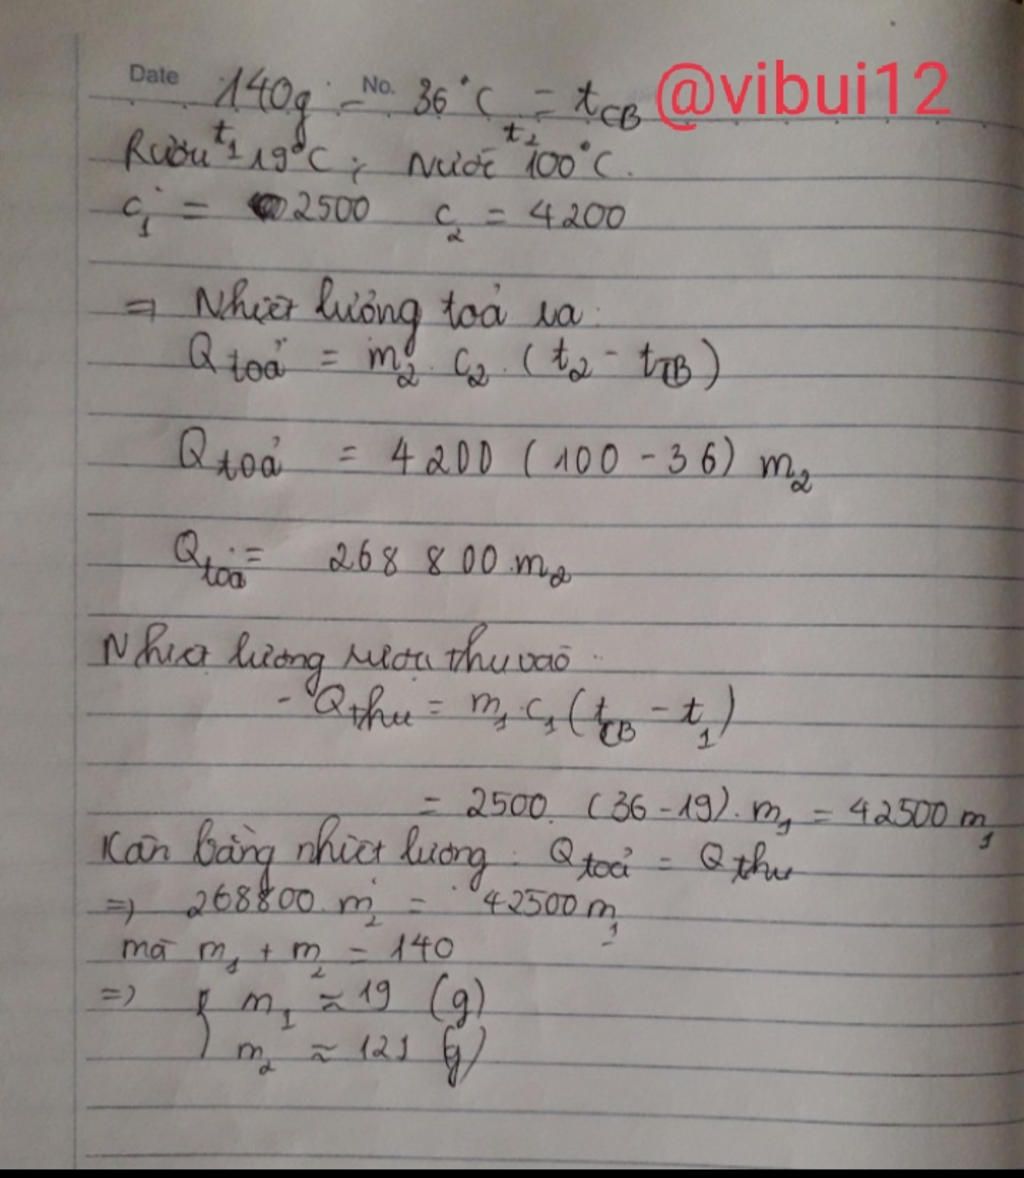 Date 140g - No. 36°C = tCB @vibui12
Rượu t1 19°C ; Nước t2 100°C.
c1 = 2500 c2 = 4200
=> Nhiệt lượng toả ra:
Qtoả = m2. c2. (t2 - tCB)
Qtoả = 4200 (100 - 36) m2
Qtoả = 268 800.m2
Nhiệt lượng rượu thu vào:
- Qthu = m1.c1(tCB - t1)
= 2500. (36 - 19). m1 = 42500 m1
Cân bằng nhiệt lượng: Qtoả = Qthu
=> 268800. m2 = 42500 m1
mà m1 + m2 = 140
=> { m1 ≈ 19 (g)
m2 ≈ 121 (g)